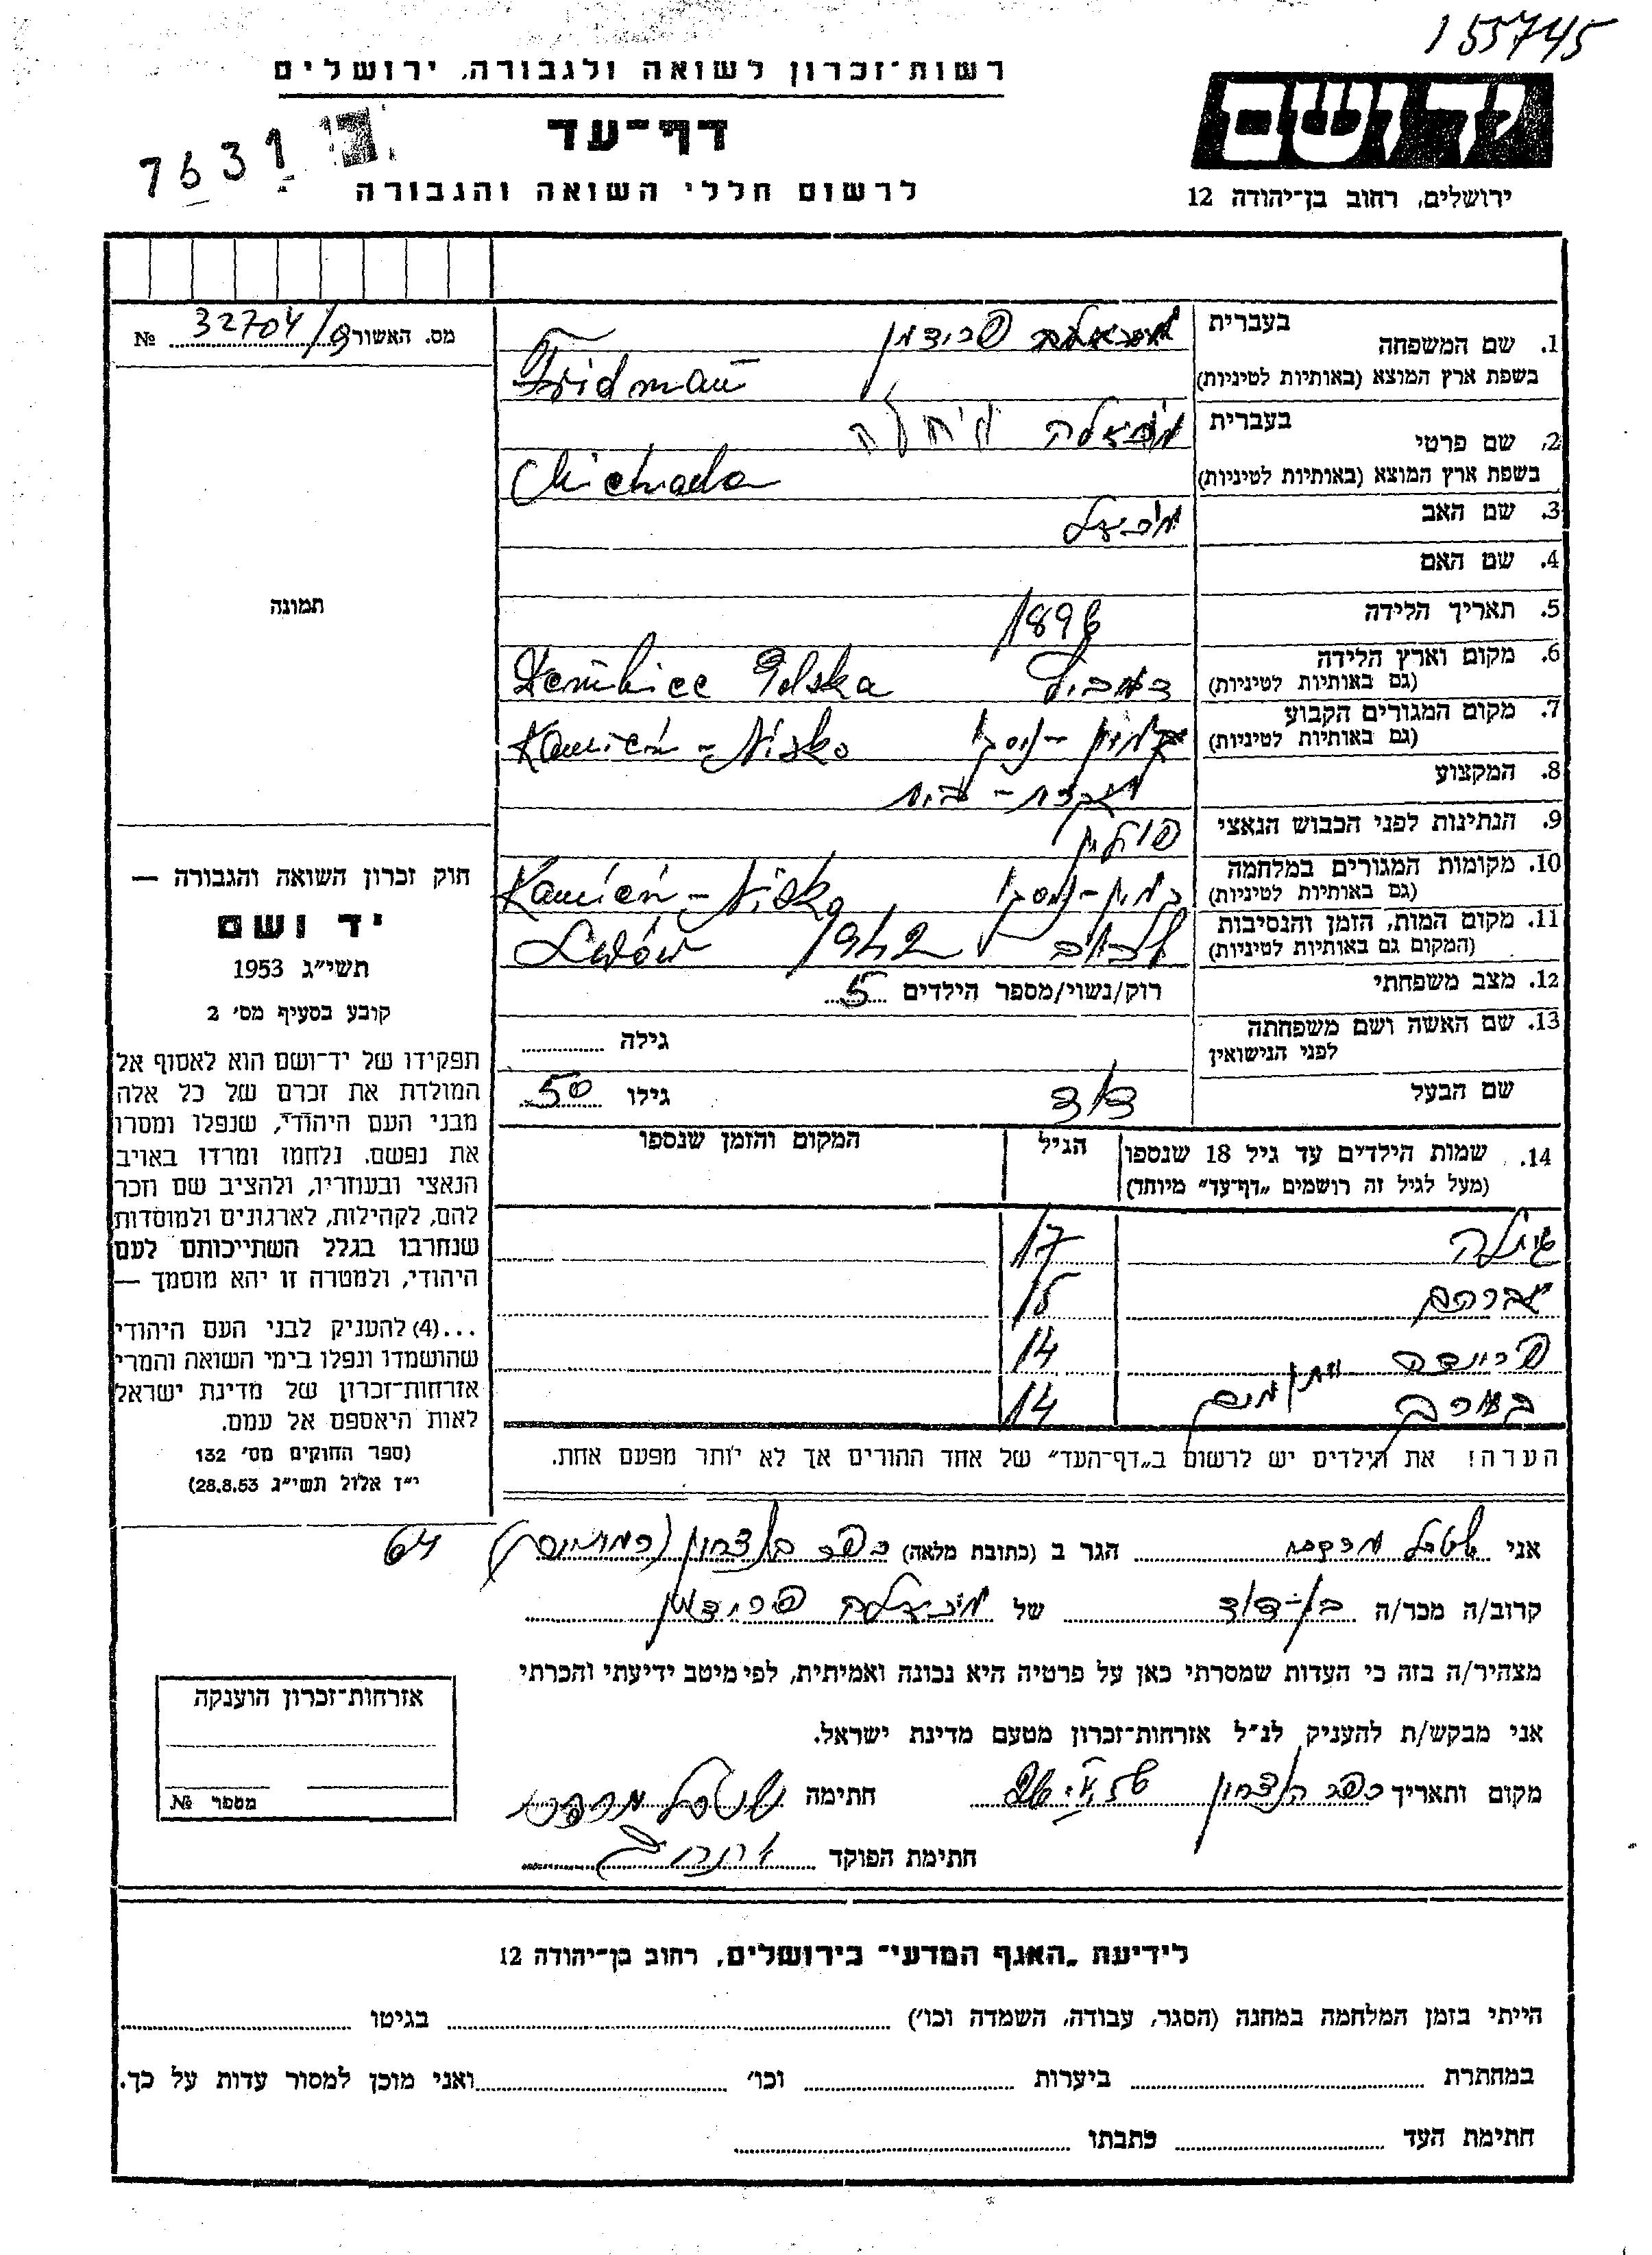 155745
רשות־זכרון לשואה ולגבורה, ירושלים
יד ושם
דף־עד
7631
לרשום חללי השואה והגבורה
ירושלים, רחוב בן־יהודה 12
מס. האשור 32704/9 №
1. שם המשפחה בעברית פרידמן
בשפת ארץ המוצא (באותיות לטיניות) Fridman
2. שם פרטי בעברית מיכאלה
בשפת ארץ המוצא (באותיות לטיניות) Michaela
3. שם האב
4. שם האם
5. תאריך הלידה 1896
6. מקום וארץ הלידה
(גם באותיות לטיניות) Polska
7. מקום המגורים הקבוע
(גם באותיות לטיניות) Kamień - Nisko קמין - ניסקו
8. המקצוע עקרת - בית
9. הנתינות לפני הכבוש הנאצי פולין
10. מקומות המגורים במלחמה
(גם באותיות לטיניות) Kamień - Nisko קמין - ניסקו
11. מקום המות, הזמן והנסיבות
(המקום גם באותיות לטיניות) Lwów 1942 לבוב
12. מצב משפחתי רוק/נשוי/מספר הילדים 5
13. שם האשה ושם משפחתה
לפני הנישואין גילה
שם הבעל דוד גילו 50
14. שמות הילדים עד גיל 18 שנספו הגיל המקום והזמן שנספו
(מעל לגיל זה רושמים „דף־עד" מיוחד)
17
אברהם 15
פרידה 14
תאומים 14
הערה! את הילדים יש לרשום ב„דף־העד" של אחד ההורים אך לא יותר מפעם אחת.
תמונה
חוק זכרון השואה והגבורה —
יד ושם
תשי״ג 1953
קובע בסעיף מס׳ 2
תפקידו של יד־ושם הוא לאסוף אל
המולדת את זכרם של כל אלה
מבני העם היהודי, שנפלו ומסרו
את נפשם, נלחמו ומרדו באויב
הנאצי ובעוזריו, ולהציב שם וזכר
להם, לקהילות, לארגונים ולמוסדות
שנחרבו בגלל השתייכותם לעם
היהודי, ולמטרה זו יהא מוסמך —
...(4) להעניק לבני העם היהודי
שהושמדו ונפלו בימי השואה והמרי
אזרחות־זכרון של מדינת ישראל
לאות היאספם אל עמם.
(ספר החוקים מס׳ 132
י״ז אלול תשי״ג 28.8.53)
אני הגר ב (כתובת מלאה) כפר 64
קרוב/ה מכר/ה בן־דוד של מיכאלה פרידמן
מצהיר/ה בזה כי העדות שמסרתי כאן על פרטיה היא נכונה ואמיתית, לפי מיטב ידיעתי והכרתי
אני מבקש/ת להעניק לנ״ל אזרחות־זכרון מטעם מדינת ישראל.
מקום ותאריך כפר חתימה
חתימת הפוקד
אזרחות־זכרון הוענקה
מספר №
לידיעת „האגף המדעי" בירושלים, רחוב בן־יהודה 12
הייתי בזמן המלחמה במחנה (הסגר, עבודה, השמדה וכו׳) בגיטו
במחתרת ביערות וכו׳ ואני מוכן למסור עדות על כך.
חתימת העד כתבתו